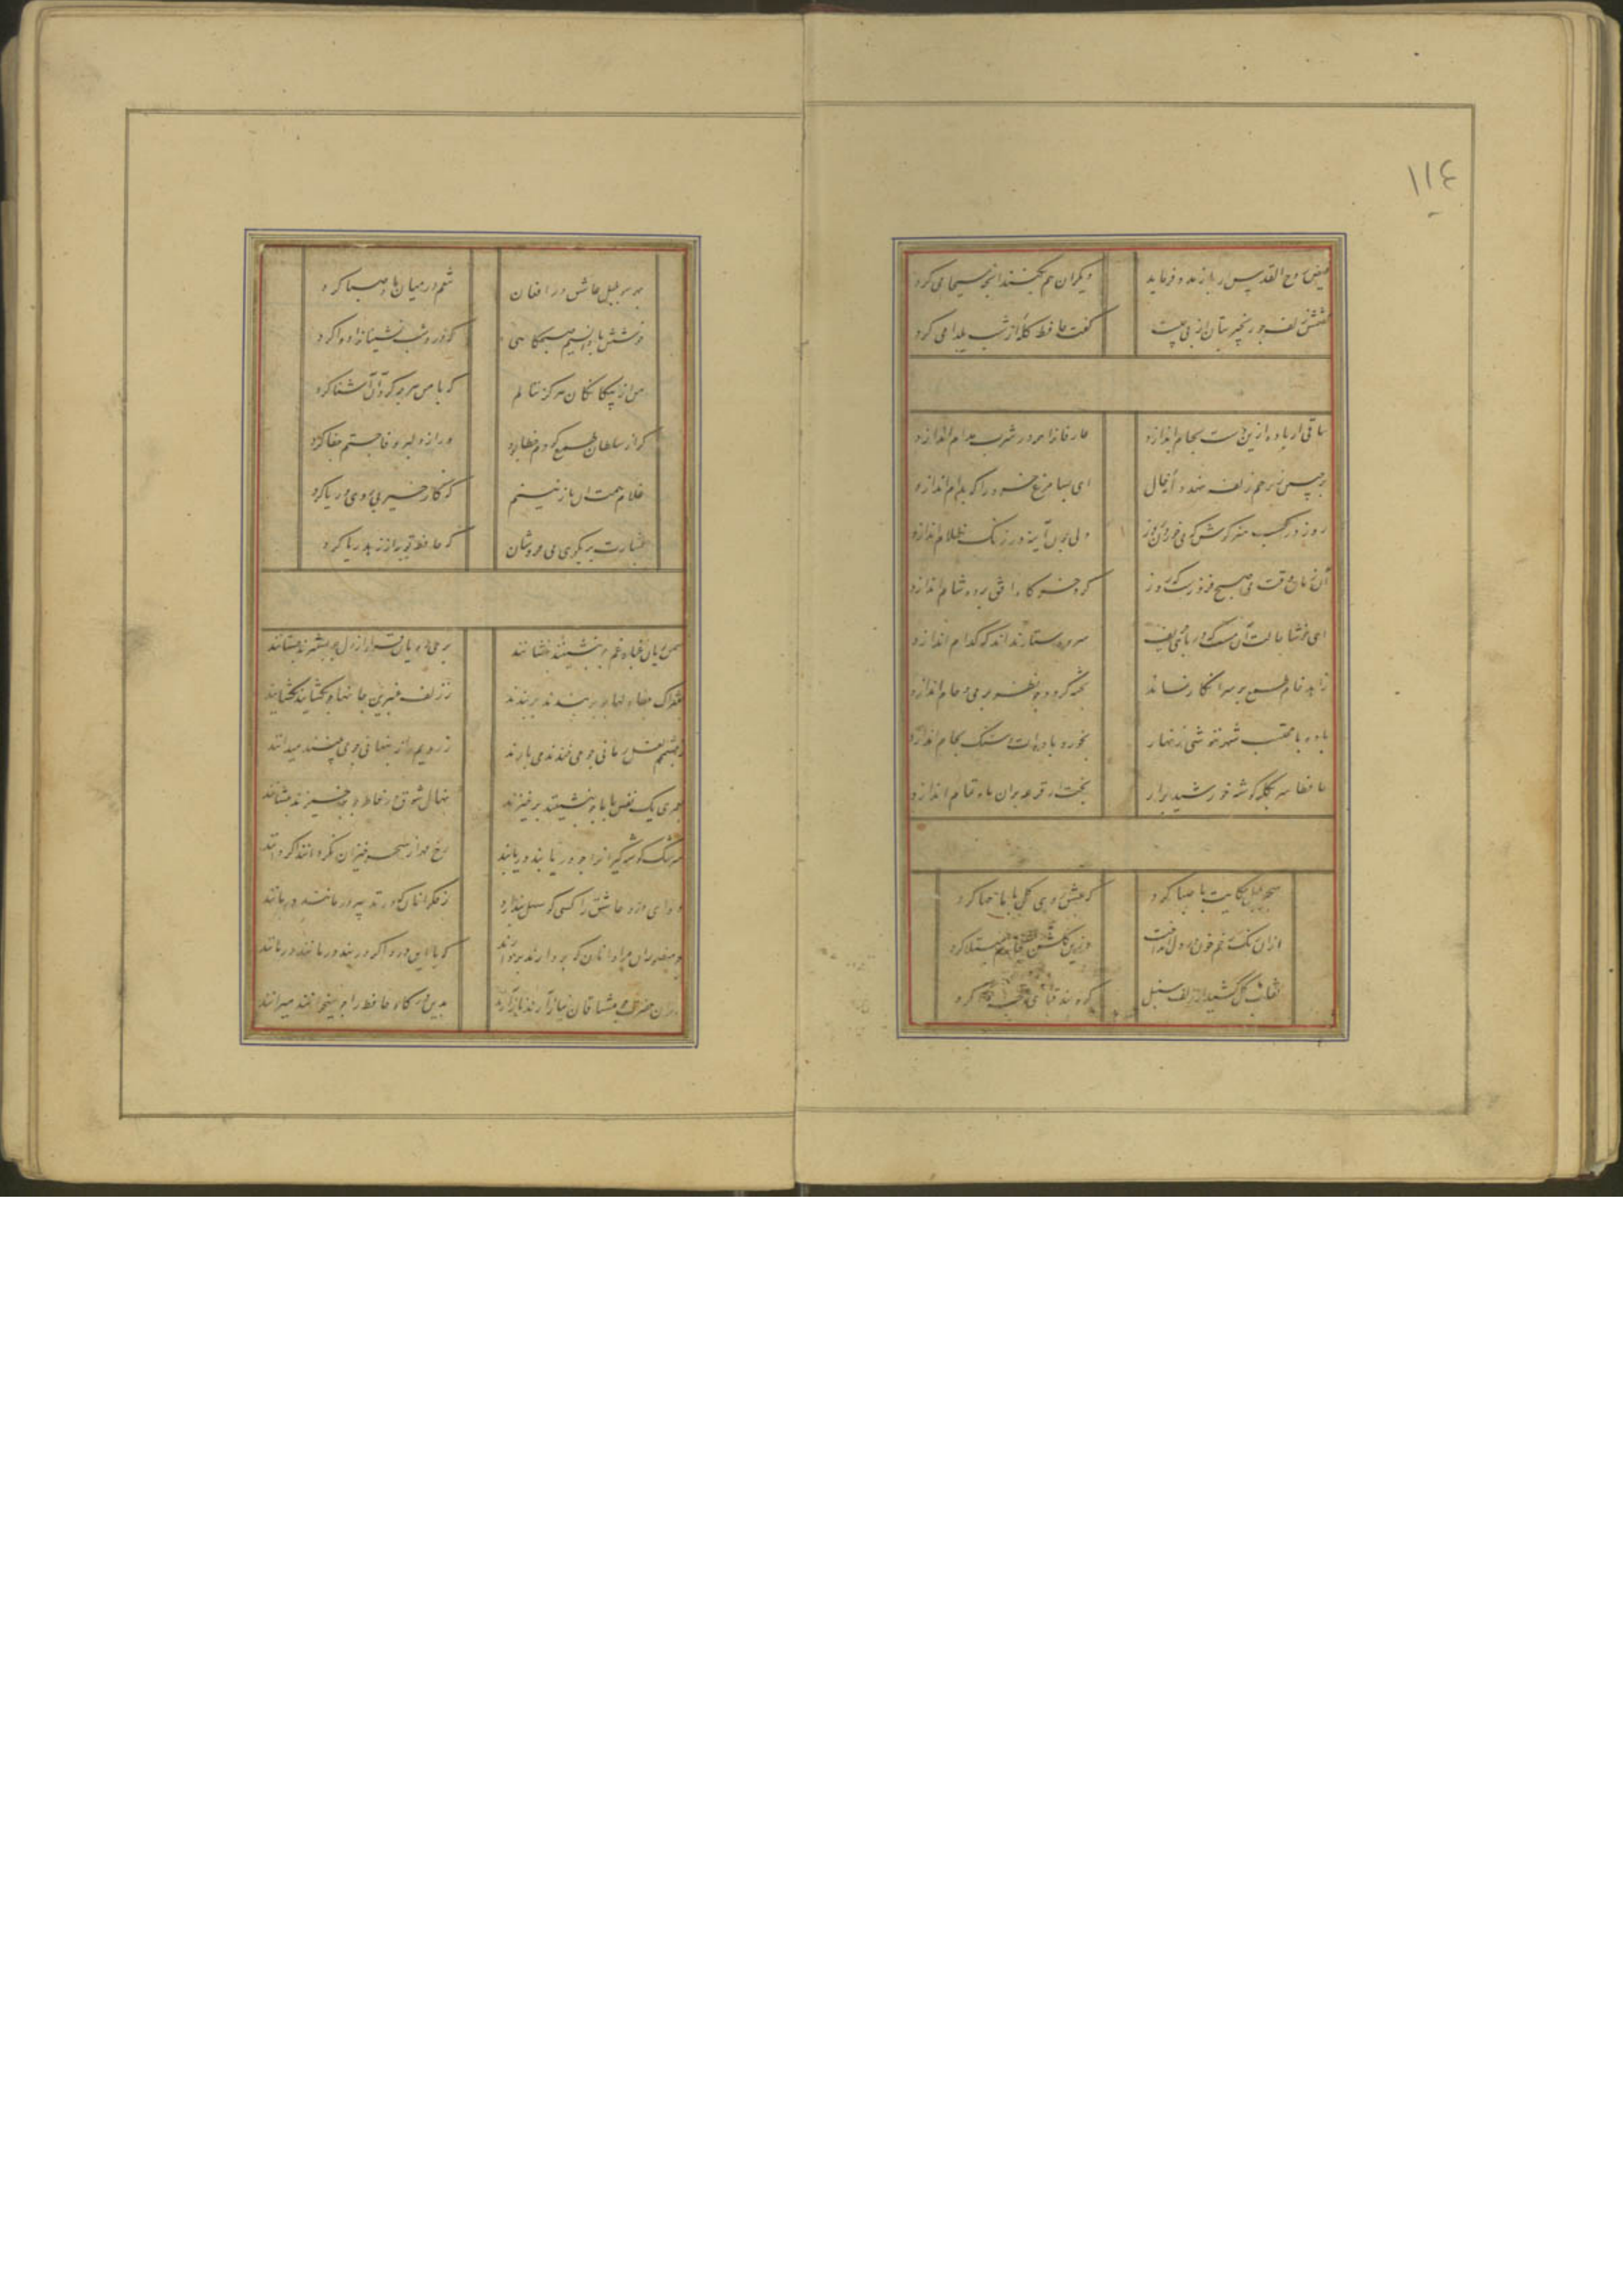 ١١٤
فیض روح القدس ار باز مدد فرماید دیگران هم بکنند آنچه مسیحا می کرد
گفتمش زلف چو زنجیر بتان از پی چیست گفت حافظ کله از شب یلدا می کرد
ساقی ار باده ازین دست بجام اندازد عارفانرا همه در شرب مدام اندازد
ور چنین زیر خم زلف نهد دانه خال ای بسا مرغ خرد را که بدام اندازد
روز در کسب هنر کوش که می خوردن روز دل چون آینه در زنک ظلام اندازد
آن زمان وقت می صبح فروزست که روز کرد خرکاه افق پرده شام اندازد
ای خوشا حالت آن مست که در پای حریف سر و دستار نداند که کدام اندازد
زاهد خام طمع بر سر انکار بماند پخته کردد چو نظر بر می و جام اندازد
باده با محتسب شهر ننوشی زنهار بخورد باده ات و سنک بجام اندازد
حافظا سر بکله کوشه خورشید برآر بختت ار قرعه بدان ماه تمام اندازد
سحر بلبل حکایت با صبا کرد که عشق روی کل با ما چها کرد
از ان رنک رخم خون در دل انداخت وزین کلشن بخارم مبتلا کرد
نقاب کل کشید و زلف سنبل کره بند قبای غنچه وا کرد
بهر سو بلبل عاشق در افغان تنعم در میان باد صبا کرد
خوشش باد آن نسیم صبحکاهی که درد شب نشینانرا دوا کرد
من از بیکانکان هرکز ننالم که با من هر چه کرد آن آشنا کرد
کر از سلطان طمع کردم خطا بود ور از دلبر وفا جستم جفا کرد
غلام همت آن نازنینم که کار خیر بی روی و ریا کرد
بشارت بر بکوی می فروشان که حافظ توبه از زهد ریا کرد
سمن بویان غبار غم چو بنشینند بنشانند پری رویان قرار از دل چو بستیزند بستانند
بفتراک جفا دلها چو بربندند بربندند ز زلف عنبرین جانها چو بکشایند بفشانند
ز چشمم لعل رمانی چو می خندند می بارند ز رویم راز پنهانی چو می بینند میدانند
بعمری یک نفس با ما چو بنشینند برخیزند نهال شوق در خاطر چو برخیزند بنشانند
سرشک کوشه کیرانرا چو دریابند دریابند رخ مهر از سحر خیزان نکردانند اکر دانند
دوای درد عاشق را کسی کو سهل پندارد ز فکر آنان که در تدبیر درمانند درمانند
چو منصور از مراد آنان که بردارند بردارند که با این درد اکر دربند درمانند درمانند
درین حضرت چو مشتاقان نیاز آرند ناز آرند بدین درکاه حافظ را چو میخوانند میرانند